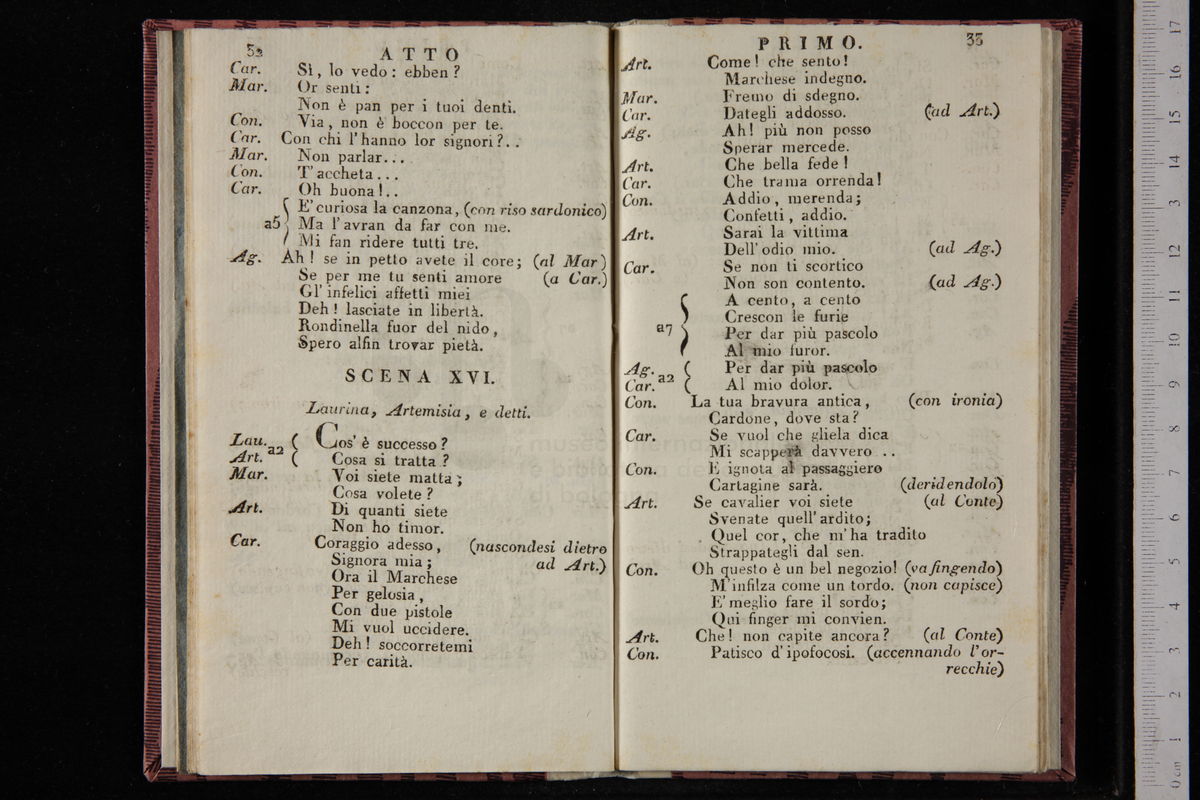 32
ATTO
Car. Sì, lo vedo: ebben?
Mar. Or senti:
Non è pan per i tuoi denti.
Con. Via, non è boccon per te.
Car. Con chi l'hanno lor signori?..
Mar. Non parlar...
Con. T'accheta...
Car. Oh buona!..
a5 { E' curiosa la canzona, (con riso sardonico)
Ma l'avran da far con me.
Mi fan ridere tutti tre.
Ag. Ah! se in petto avete il core; (al Mar)
Se per me tu senti amore (a Car.)
Gl'infelici affetti miei
Deh! lasciate in libertà.
Rondinella fuor del nido,
Spero alfin trovar pietà.
SCENA XVI.
Laurina, Artemisia, e detti.
Lau. a2 { Cos' è successo?
Art. Cosa si tratta?
Mar. Voi siete matta;
Cosa volete?
Art. Di quanti siete
Non ho timor.
Car. Coraggio adesso, (nascondesi dietro
Signora mia; ad Art.)
Ora il Marchese
Per gelosia,
Con due pistole
Mi vuol uccidere.
Deh! soccorretemi
Per carità.
PRIMO. 33
Art. Come! che sento!
Marchese indegno.
Mar. Fremo di sdegno.
Car. Dategli addosso. (ad Art.)
Ag. Ah! più non posso
Sperar mercede.
Art. Che bella fede!
Car. Che trama orrenda!
Con. Addio, merenda;
Confetti, addio.
Art. Sarai la vittima
Dell'odio mio. (ad Ag.)
Car. Se non ti scortico
Non son contento. (ad Ag.)
a7 { A cento, a cento
Crescon le furie
Per dar più pascolo
Al mio furor.
Ag. a2 { Per dar più pascolo
Car. Al mio dolor.
Con. La tua bravura antica, (con ironia)
Cardone, dove sta?
Car. Se vuol che gliela dica
Mi scapperà davvero ..
Con. E ignota al passaggiero
Cartagine sarà. (deridendolo)
Art. Se cavalier voi siete (al Conte)
Svenate quell'ardito;
Quel cor, che m'ha tradito
Strappategli dal sen.
Con. Oh questo è un bel negozio! (va fingendo)
M'infilza come un tordo. (non capisce)
E' meglio fare il sordo;
Qui finger mi convien.
Art. Che! non capite ancora? (al Conte)
Con. Patisco d'ipofocosi. (accennando l'or-
recchie)
museo
0 cm 1 2 3 4 5 6 7 8 9 10 11 12 13 14 15 16 17